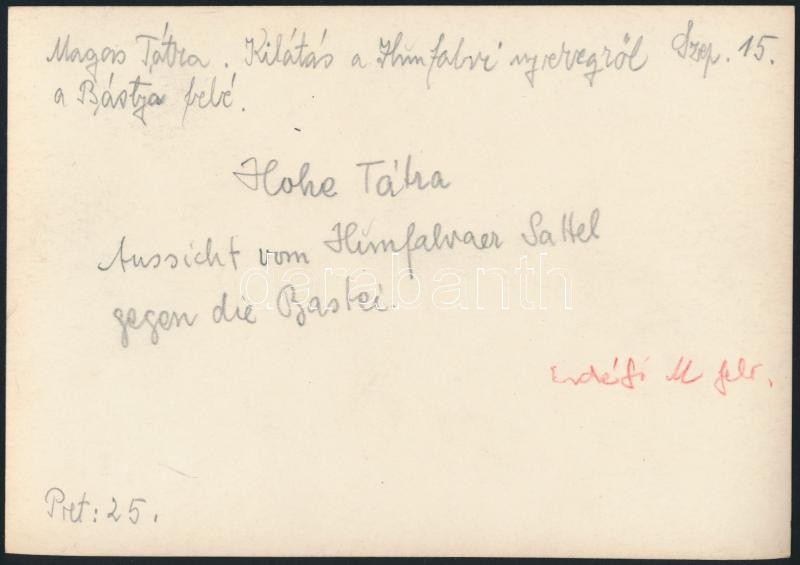 Magas Tátra. Kilátás a Hunfalvi nyeregről Szep. 15.
a Bástya felé.
Hohe Tátra
Aussicht vom Hunfalvaer Sattel
gegen die Bastei.
darabanth
Erdélyi M felv.
Pret: 25.